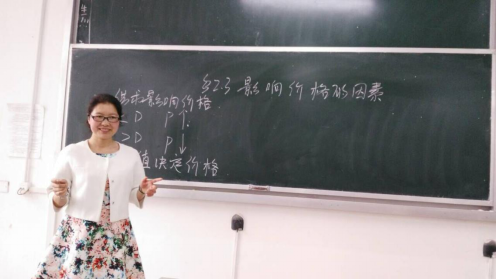 §2.3 影响价格的因素
供求影响价格
D P↑
>D P↓
决定价格